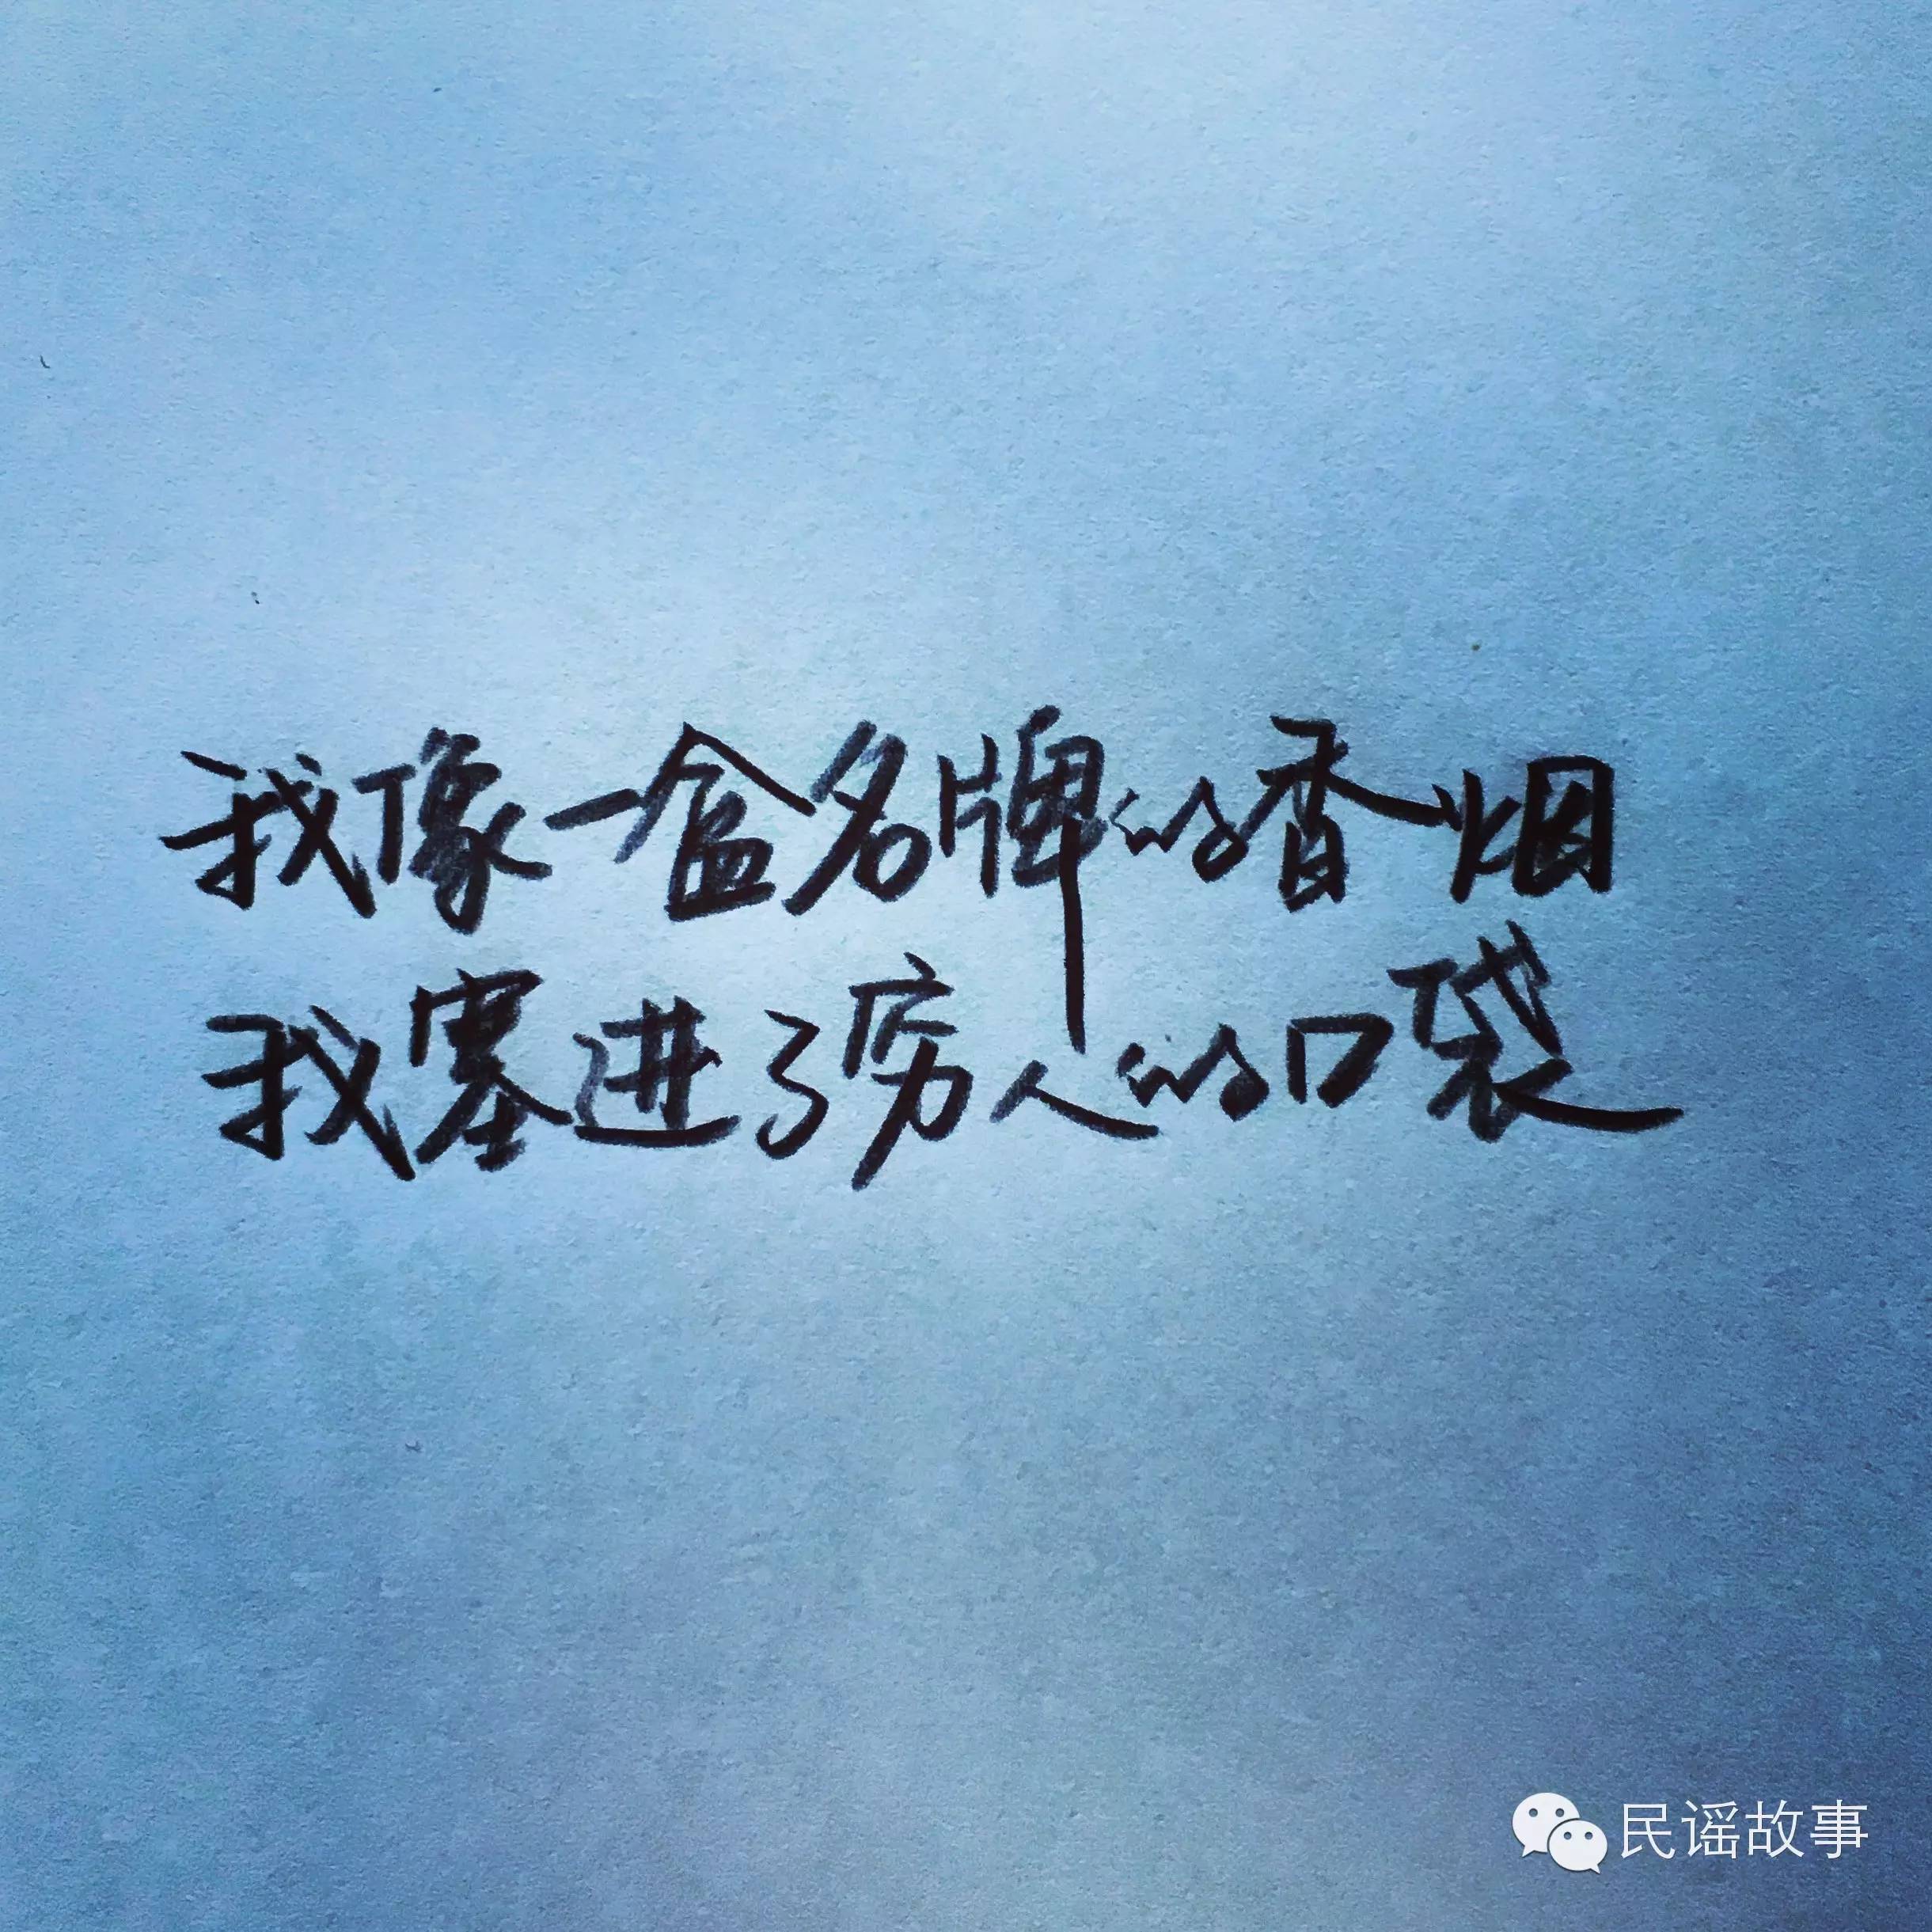 我像一盒名牌的香烟
我塞进了穷人的口袋
民谣故事